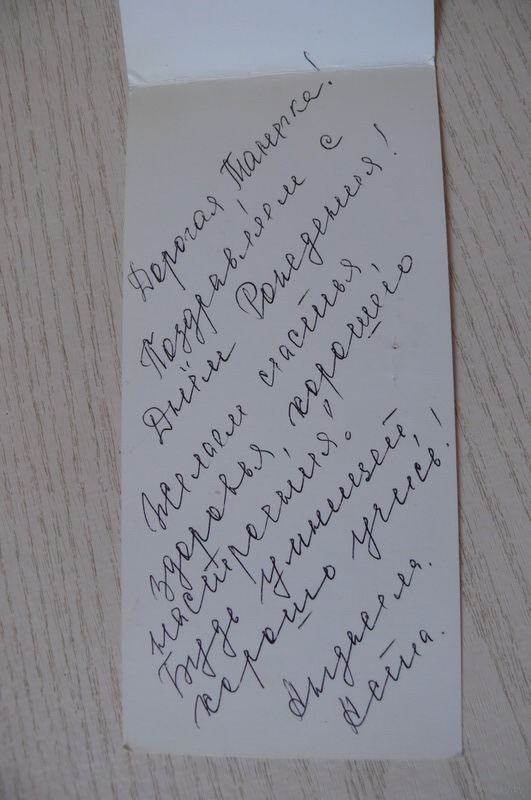 Дорогая Танечка!
Поздравляем с
Днём Рождения!
Желаем счастья,
здоровья, хорошего
настроения!
Будь умницей,
хорошо учись!